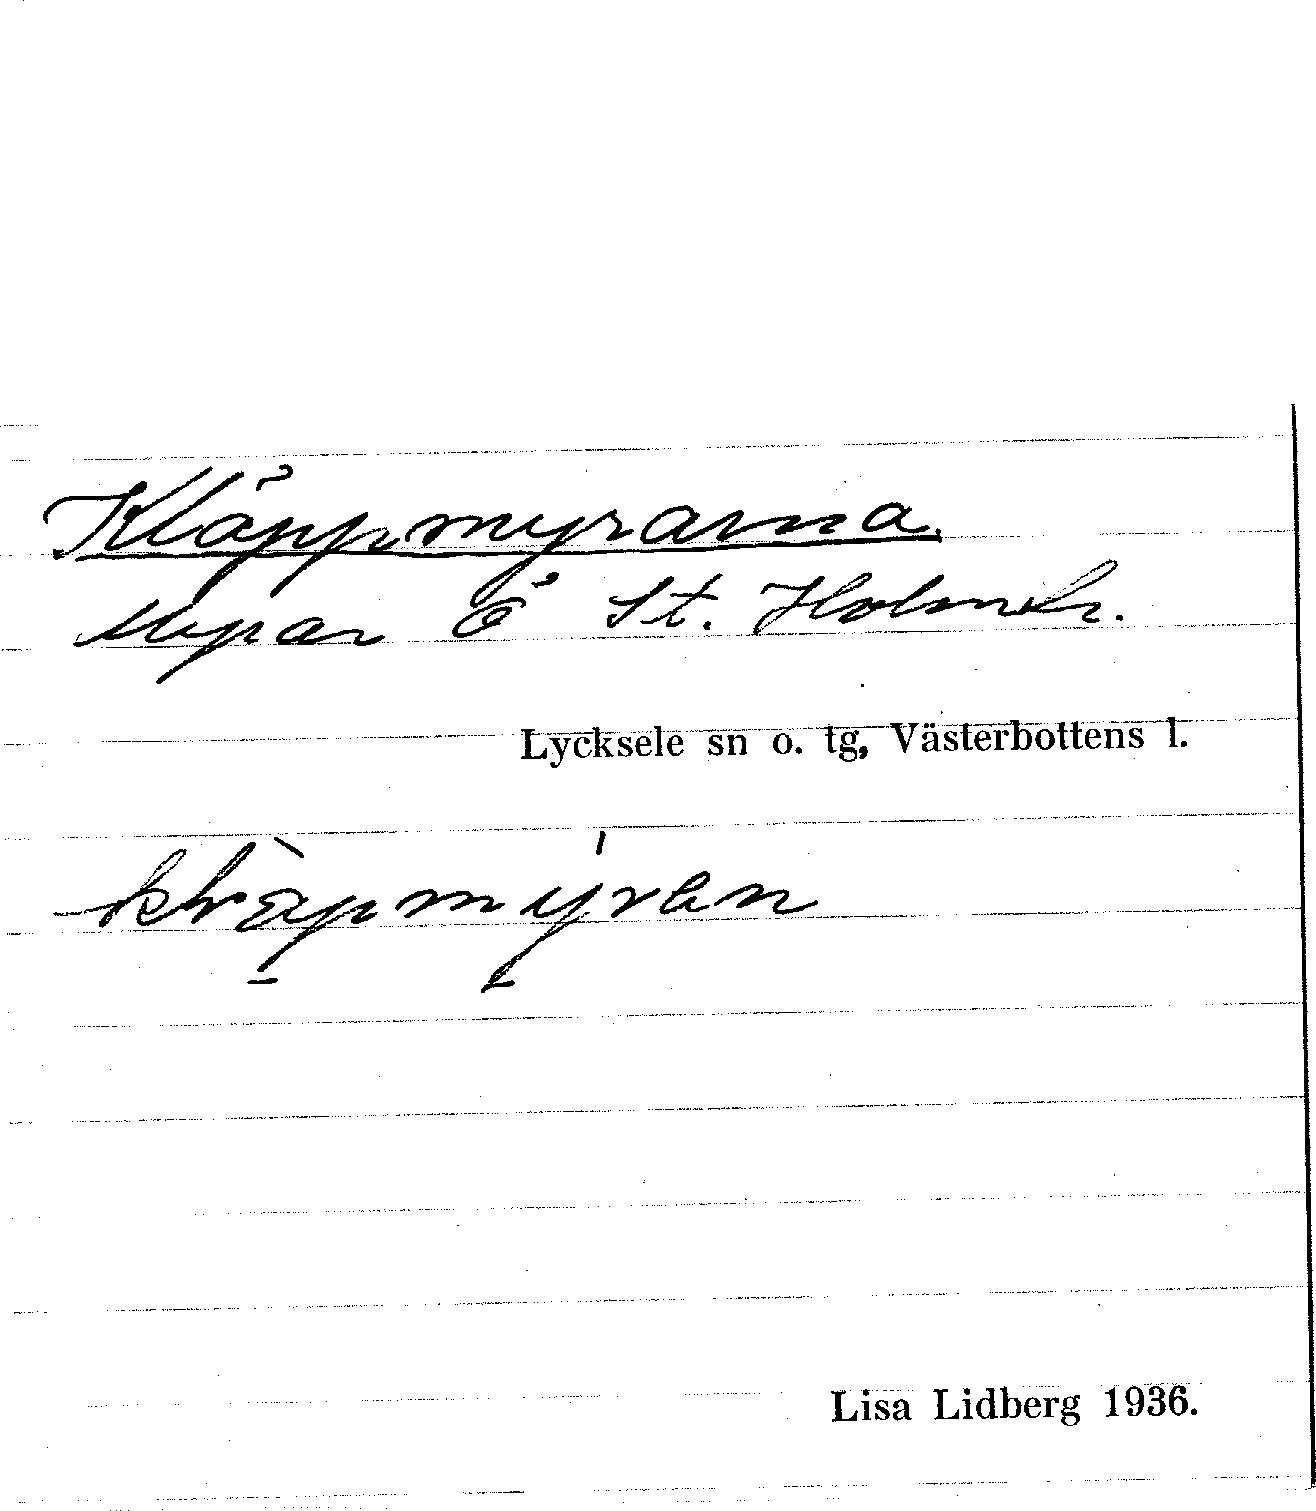 Kläppmyrarna.
Myrar Ö St. Holmsele.
Lycksele sn o. tg, Västerbottens l.
Lisa Lidberg 1936.